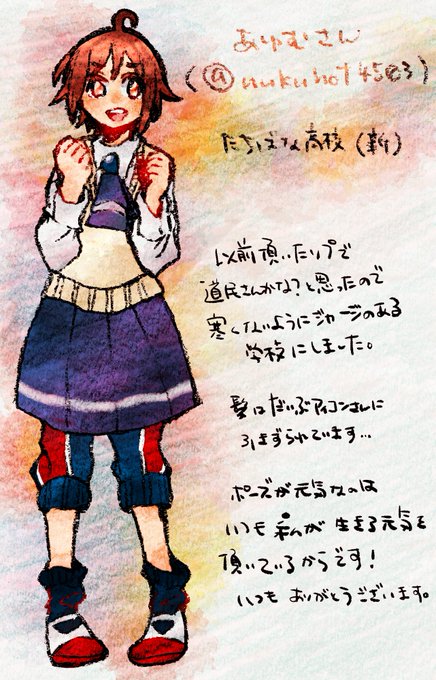 あゆむさん
(@nukunot4503)
たちばな高校(新)
以前頂いたリプで
道民さんかな?と思ったので
寒くないようにジャージのある
学校にしました。
髪はだいぶアイコンさんに
引きずられています…
ポーズが元気なのは
いつも私が生きる元気を
頂いているからです!
いつもありがとうございます。